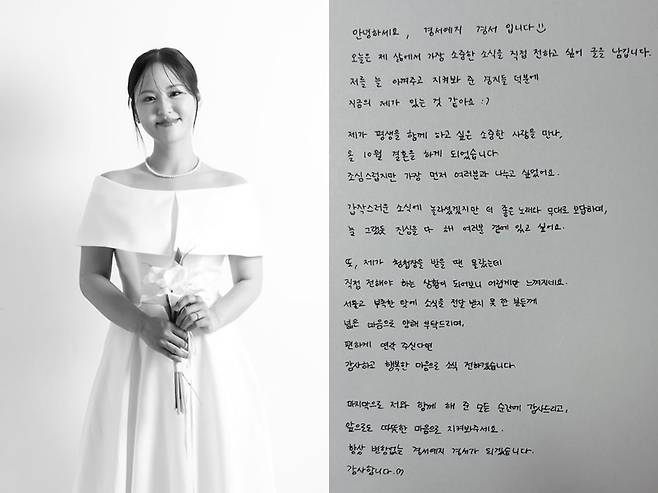 안녕하세요, 경서예지 경서 입니다:)
오늘은 제 삶에서 가장 소중한 소식을 직접 전하고 싶어 글을 남깁니다.
저를 늘 아껴주고 지켜봐 준 경지들 덕분에
지금의 제가 있는 것 같아요 :)
제가 평생을 함께 하고 싶은 소중한 사람을 만나,
올 10월 결혼을 하게 되었습니다
조심스럽지만 가장 먼저 여러분과 나누고 싶었어요.
갑작스러운 소식에 놀라셨겠지만 더 좋은 노래와 무대로 보답하며,
늘 그랬듯 진심을 다 해 여러분 곁에 있고 싶어요.
또, 제가 청첩장을 받을 땐 몰랐는데
직접 전해야 하는 상황이 되어보니 어렵게만 느껴지네요.
서툴고 부족한 탓에 소식을 전달 받지 못 한 분들께
넓은 마음으로 양해 부탁드리며,
편하게 연락 주신다면
감사하고 행복한 마음으로 소식 전하겠습니다.
마지막으로 저와 함께 해 준 모든 순간에 감사드리고,
앞으로도 따뜻한 마음으로 지켜봐주세요.
항상 변함없는 경서예지 경서가 되겠습니다.
감사합니다.